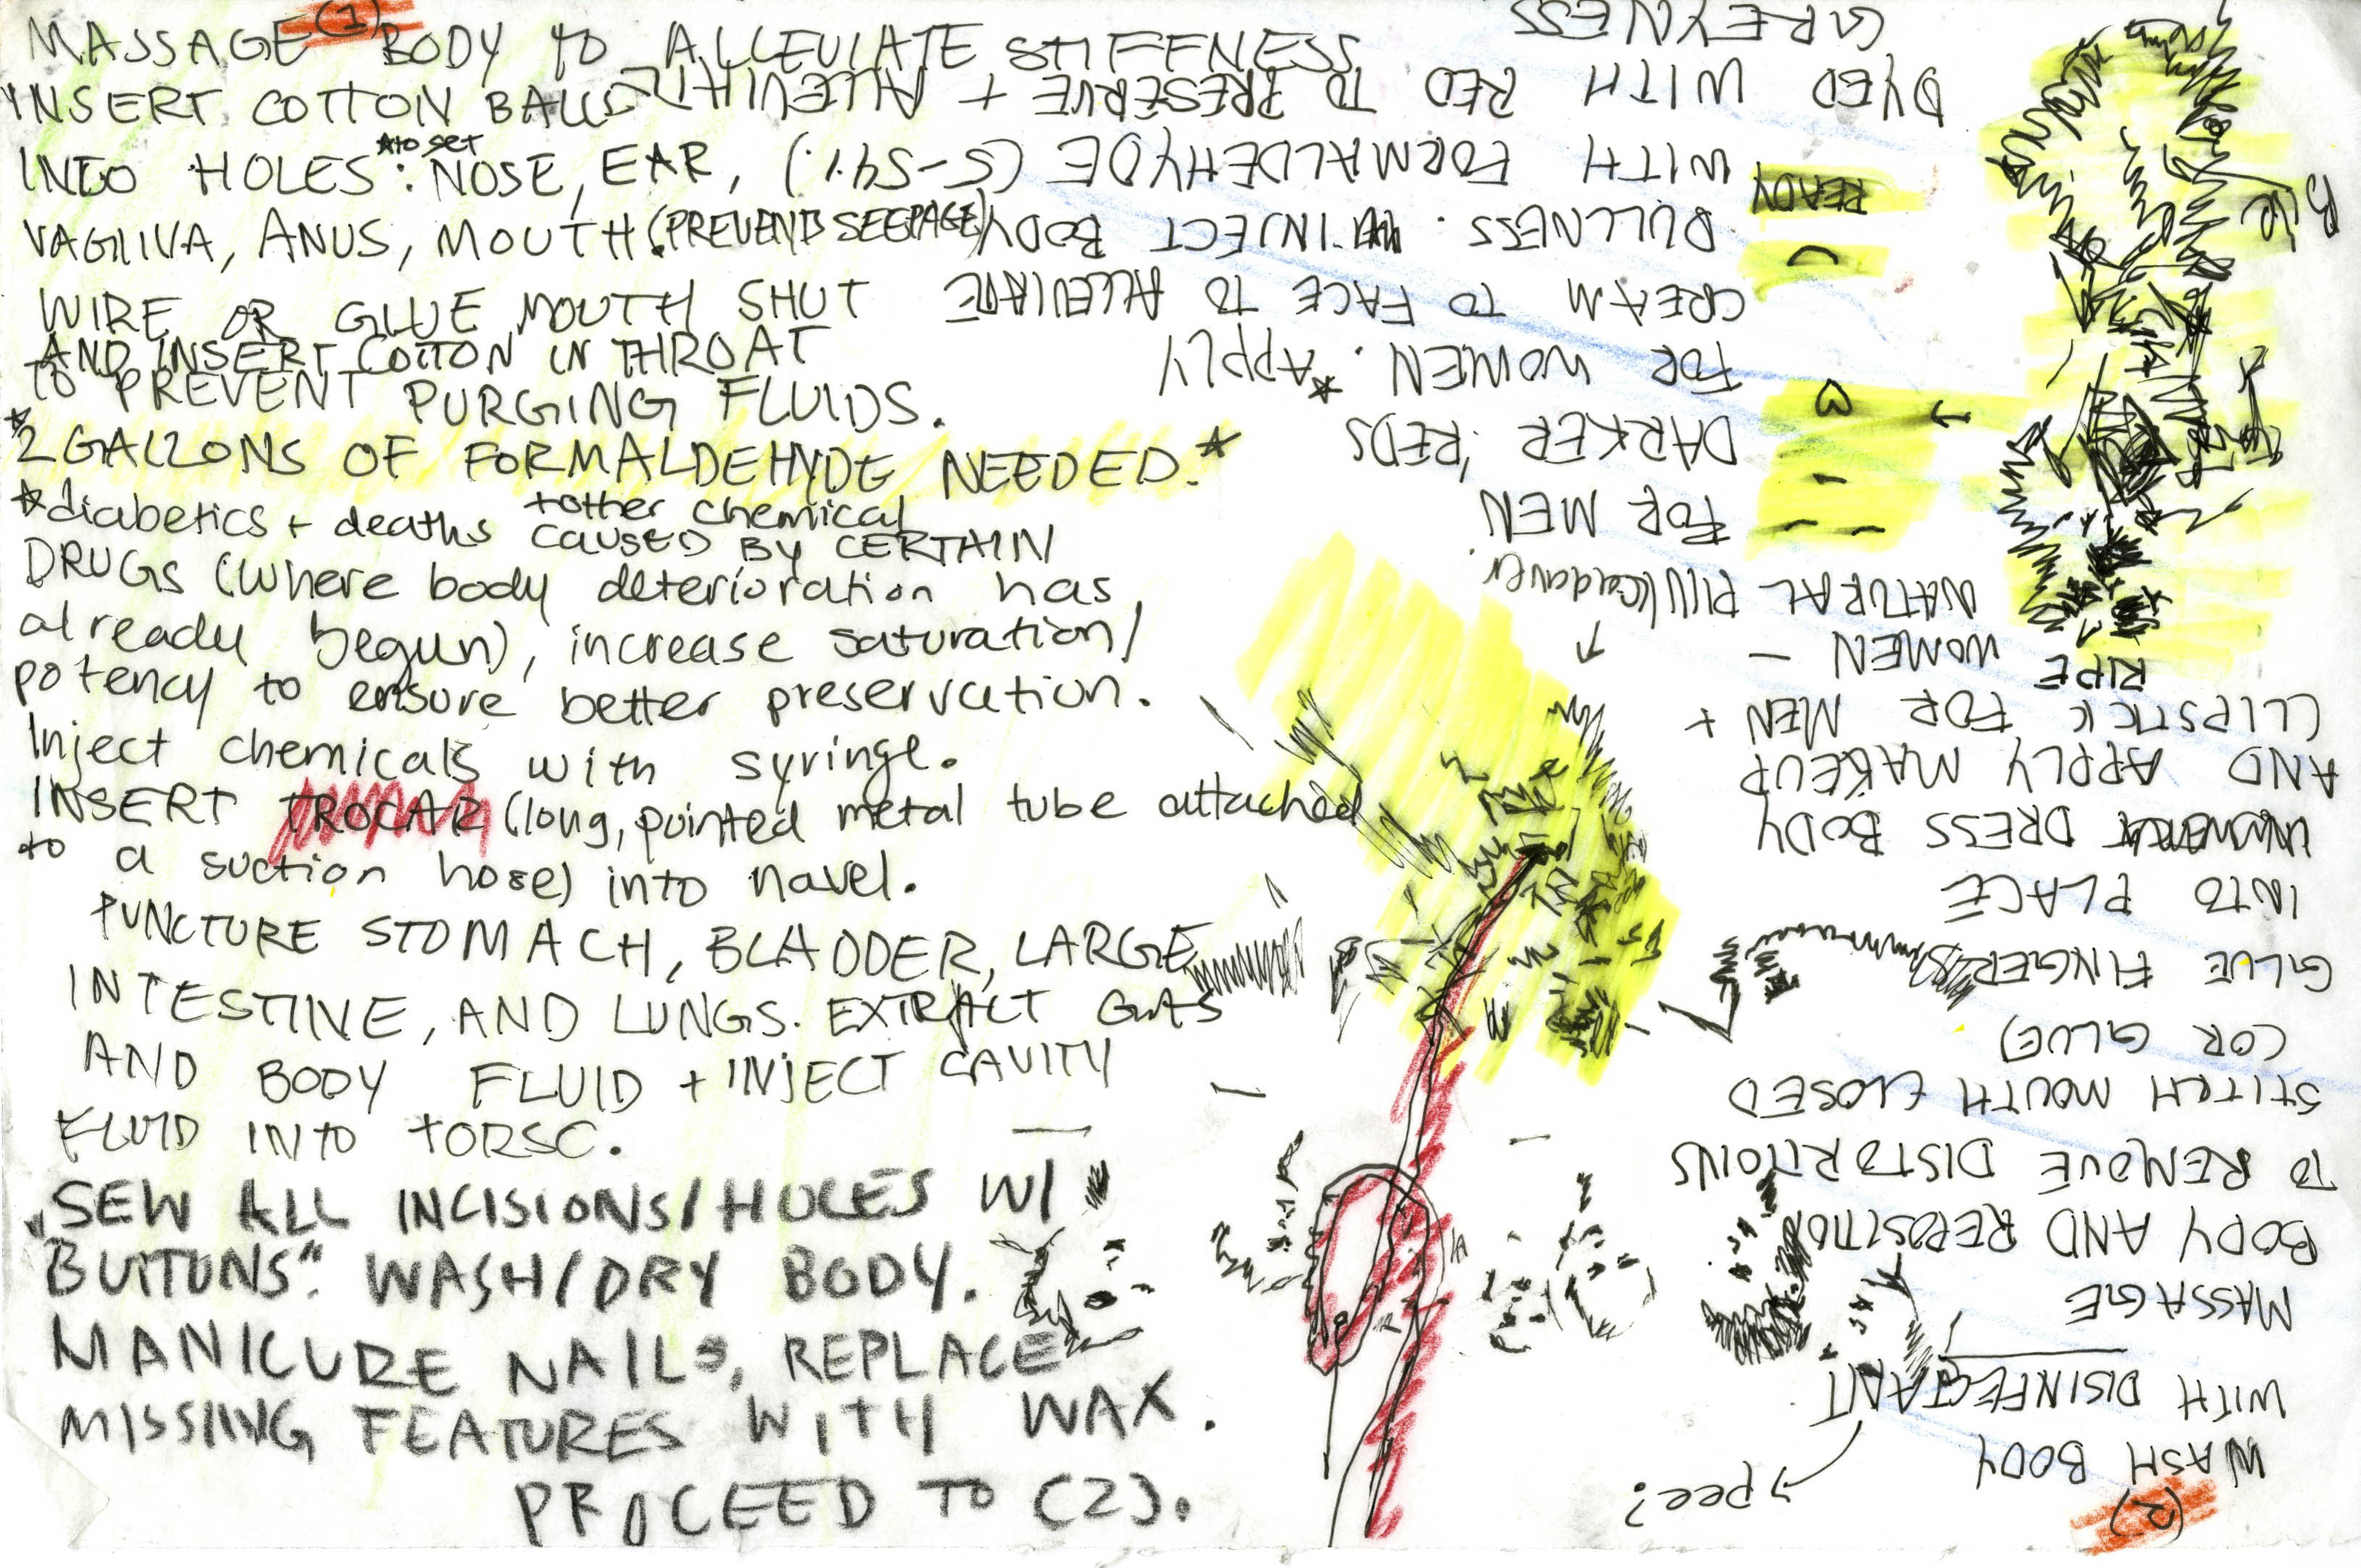 (1)
MASSAGE BODY TO ALLEVIATE STIFFNESS
INSERT COTTON BALLS
INTO HOLES *to set : NOSE, EAR,
VAGIIVA, ANUS, MOUTH. (PREVENTS SEEPAGE)
WIRE OR GLUE MOUTH SHUT
AND INSERT COTTON IN THROAT
TO PREVENT PURGING FLUIDS.
*2 GALLONS OF FORMALDEHYDE NEEDED.*
*diabetics + deaths +other chemical
CAUSED BY CERTAIN
DRUGS (where body deterioration has
already begun), increase saturation/
potency to ensure better preservation.
Inject chemicals with syringe.
INSERT TROCAR (long, pointed metal tube attached
to a suction hose) into navel.
PUNCTURE STOMACH, BLADDER, LARGE
INTESTINE, AND LUNGS. EXTRACT GAS
AND BODY FLUID + INJECT CAVITY
FLUID INTO TORSO.
SEW ALL INCISIONS/HOLES W/
"BUTTONS". WASH/DRY BODY.
MANICURE NAILS, REPLACE
MISSIING FEATURES WITH WAX.
PROCEED TO (2).
(2)
WASH BODY
→ pee?
WITH DISINFECTANT
MASSAGE
BODY AND REPOSITION
TO REMOVE DISTORTIONS
STITCH MOUTH CLOSED
(OR GLUE)
GLUE FINGERS
INTO PLACE
DRESS BODY
AND APPLY MAKEUP
(LIPSTICK FOR MEN +
WOMEN -
RIPE
NATURAL PINK cadaver.
FOR MEN
DARKER REDS
FOR WOMEN. *APPLY
CREAM TO FACE TO ALLEVIATE
DULLNESS. INJECT BODY
READY
WITH FORMALDEHYDE (5-54%)
DYED WITH RED TO PRESERVE + ALLEVIATE
GREYNESS